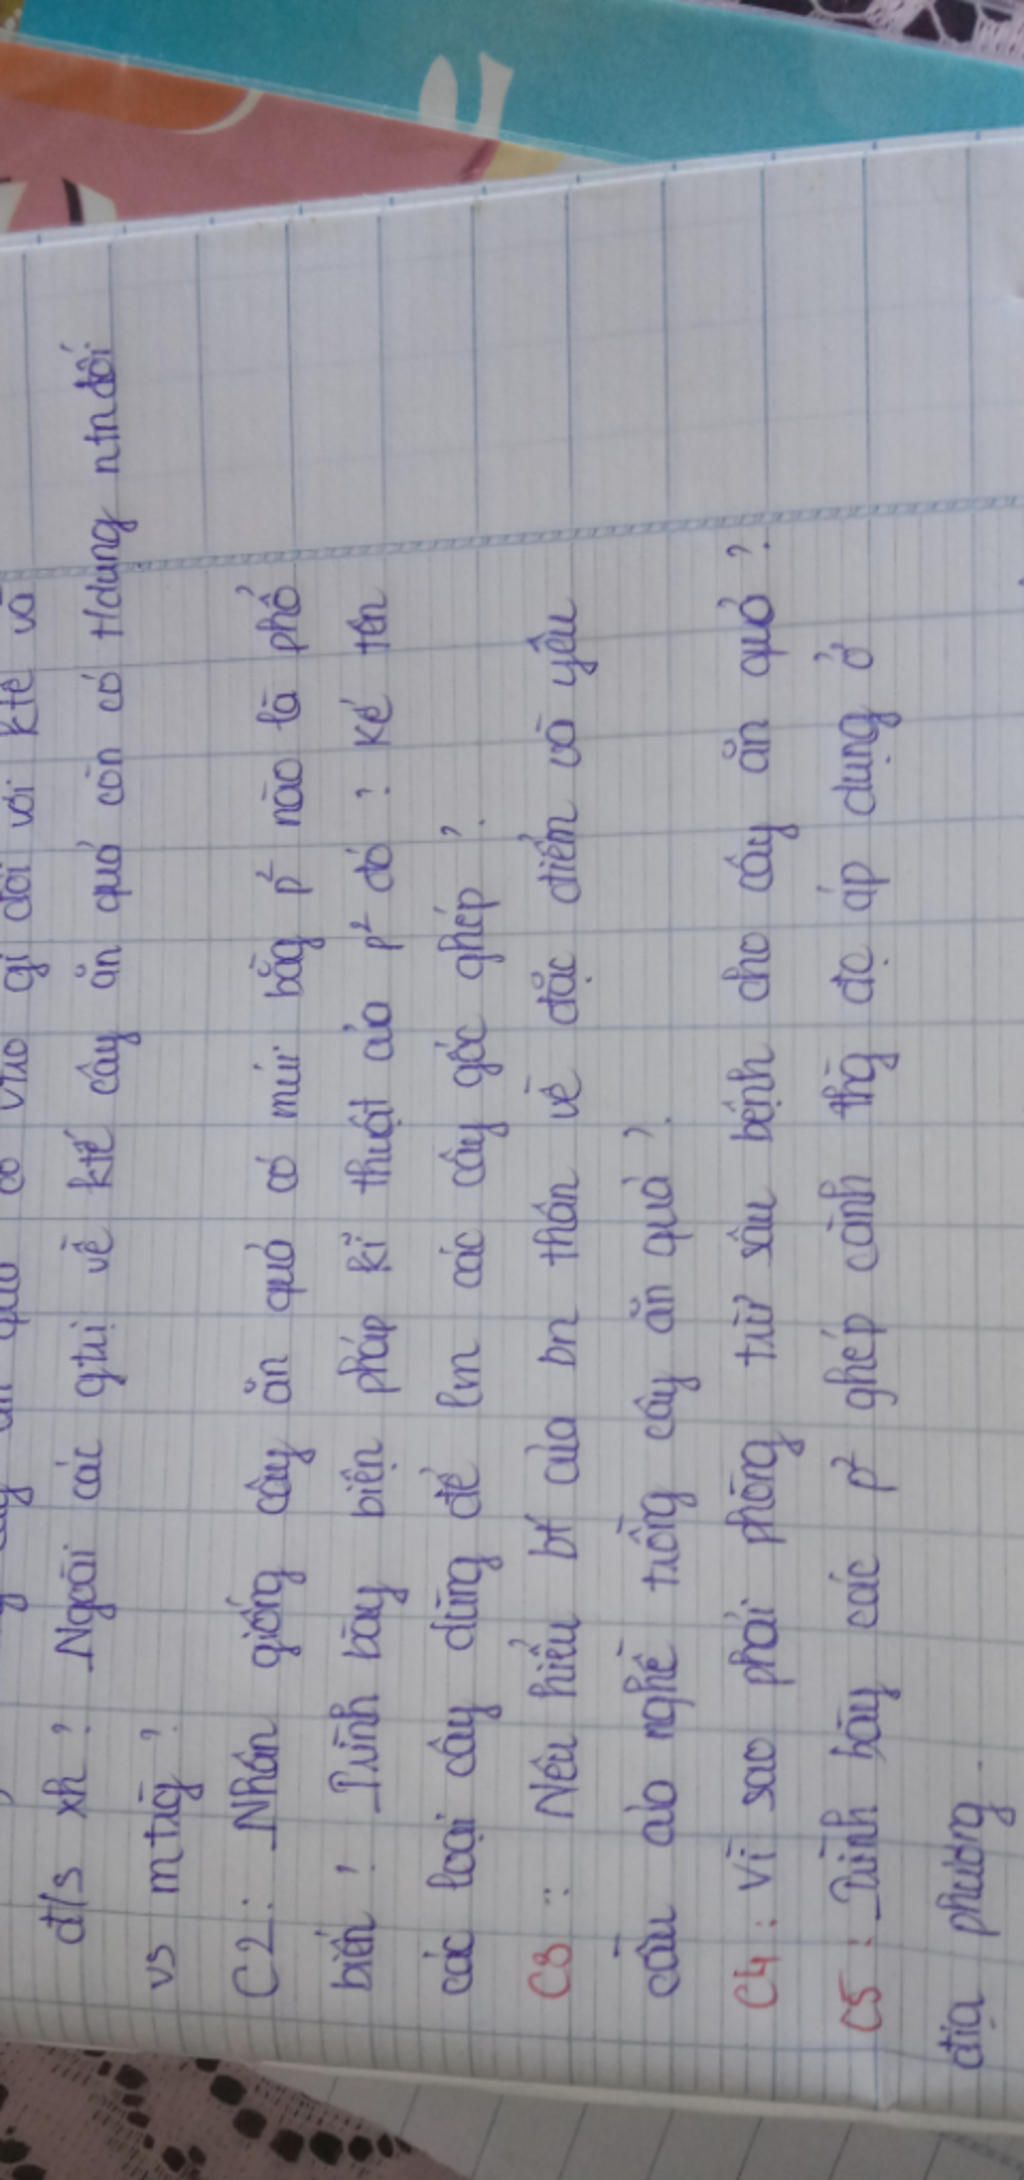 gì đối với ktế và
đ/s xh? Ngoài các gtrị về ktế cây ăn quả còn có t/dụng ntn đối
vs mtrg?
C2: Nhân giống cây ăn quả có múi bằg p² nào là phổ
biến? Trình bày biện pháp kĩ thuật của p² đó? Kể tên
các loại cây dùng để lm các cây gốc ghép?
C3: Nêu hiểu bt của bn thân về đặc điểm và yêu
cầu của nghề trồng cây ăn quả?
C4: Vì sao phải phòng trừ sâu bệnh cho cây ăn quả?
C5: Trình bày các p² ghép cành thg đc áp dụng ở
địa phương.